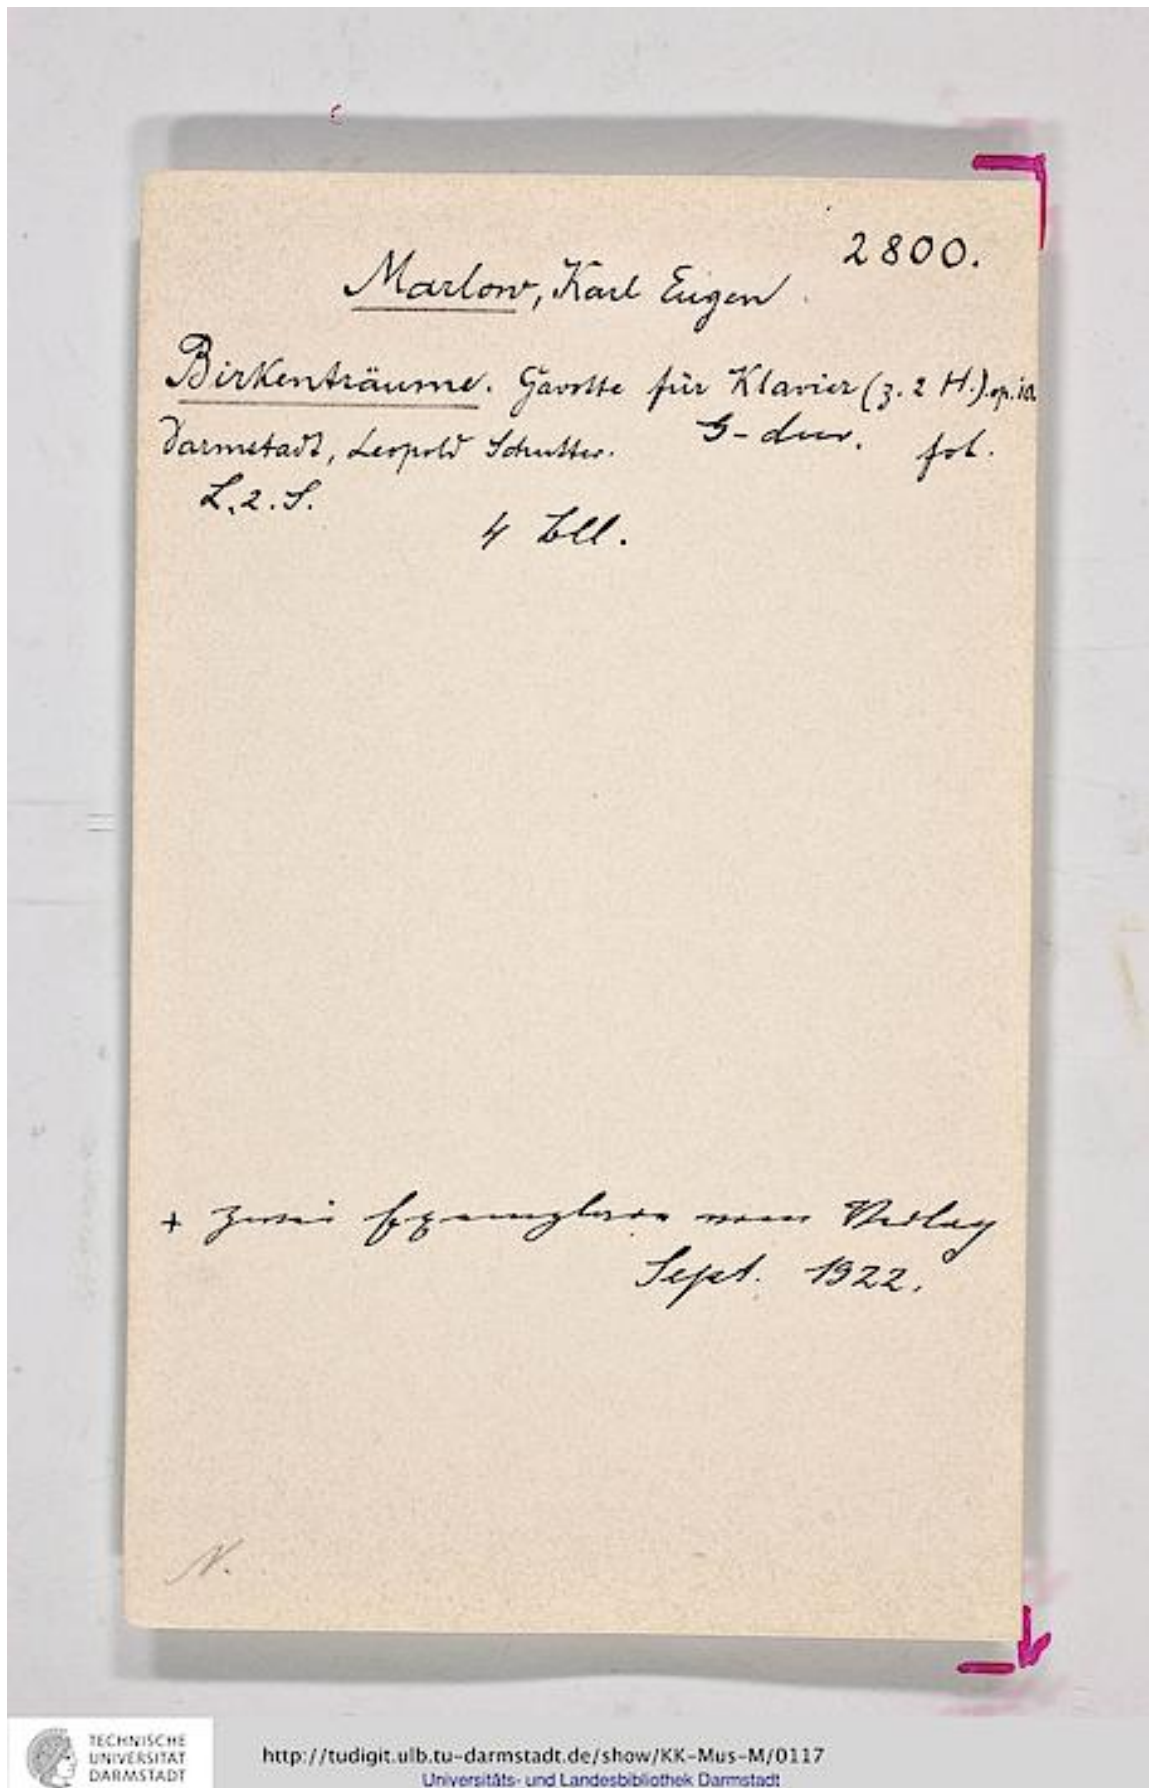 2800.
Marlow, Karl Eugen
Birkenträume. Gavotte für Klavier (z. 2 H.). op.
Darmstadt, Leopold Schutter. G-dur. fol.
L. 2. S.
4 Bll.
+ zwei Exemplare vom Verlag
Sept. 1922.
N.
TECHNISCHE
UNIVERSITÄT
DARMSTADT
http://tudigit.ulb.tu-darmstadt.de/show/KK-Mus-M/0117
Universitäts- und Landesbibliothek Darmstadt